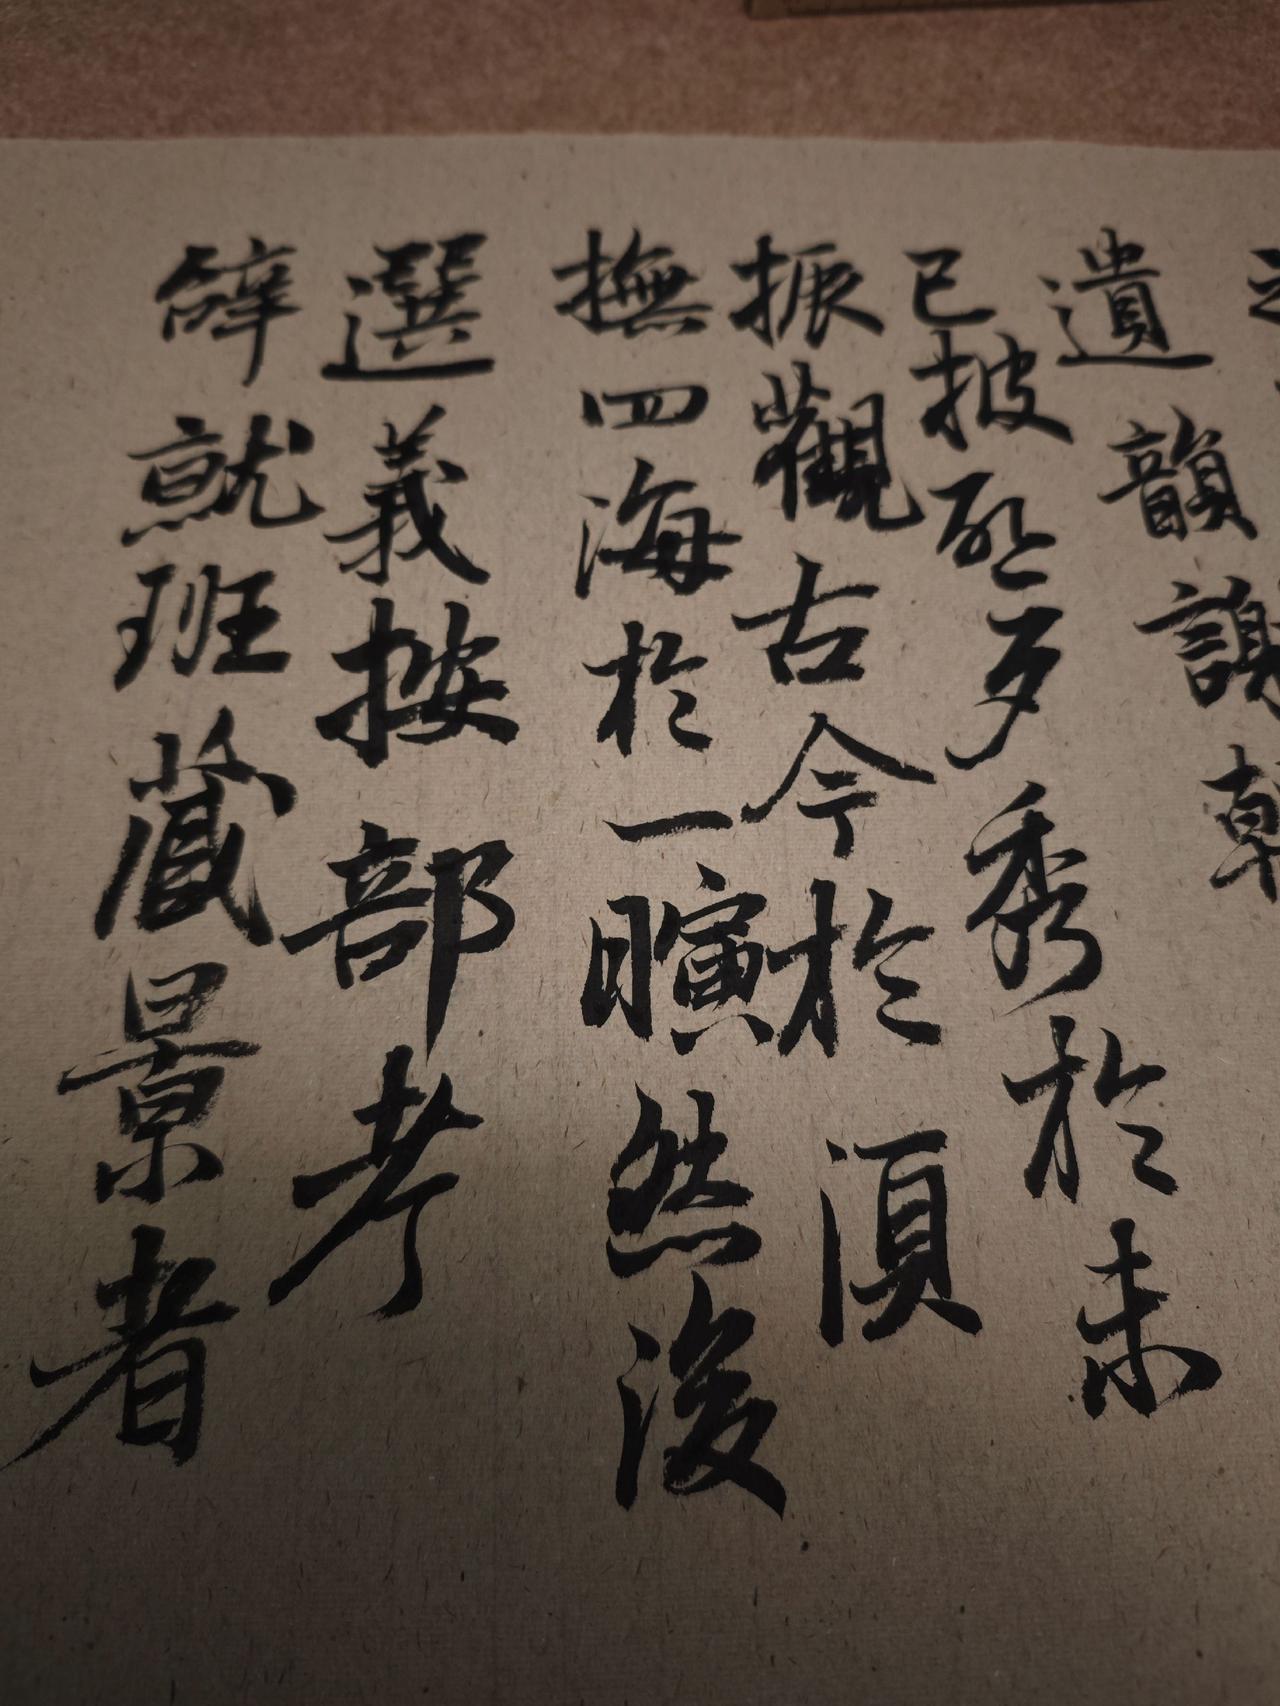 遺韻謝朝
已披啓夕秀於未
振觀古今於湏
撫四海於一瞚然後
選義按部考
辭就班藏景者